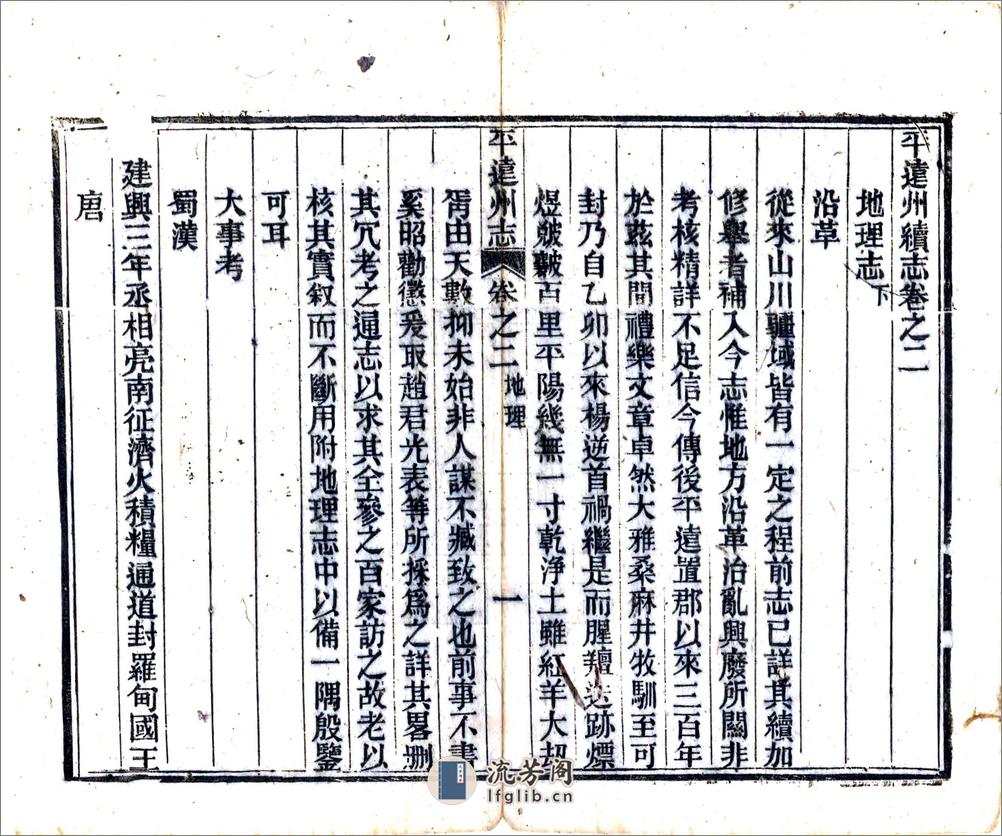 平遠州續志卷之二
地理志下
沿革
從來山川疆域皆有一定之程前志已詳其續加
修舉者補入今志惟地方沿革治亂興廢所關非
考核精詳不足信今傳後平遠置郡以來三百年
於茲其間禮樂文章卓然大雅桑麻井牧馴至可
封乃自乙卯以來楊逆首禍繼是而腥羶迭跡熛
煜皴皺百里平陽幾無一寸乾淨土雖紅羊大劫
平遠州志 卷之二 地理 一
胥由天數抑未始非人謀不臧致之也前事不書
奚昭勸懲爰取趙君光表等所採為之詳其畧刪
其冗考之通志以求其全參之百家訪之故老以
核其實叙而不斷用附地理志中以備一隅殷鑒
可耳
大事考
蜀漢
建興三年丞相亮南征濟火積糧通道封羅甸國王
唐
流芳閣
lfglib.cn